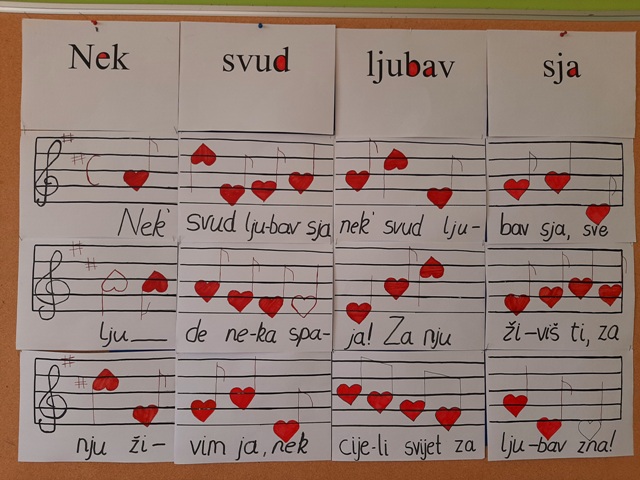 Nek svud ljubav sja
Nek' svud lju-bav sja nek' svud lju- bav sja, sve
lju__ de ne-ka spa- ja! Za nju ži-viš ti, za
nju ži- vim ja, nek cije-li svijet za lju-bav zna!